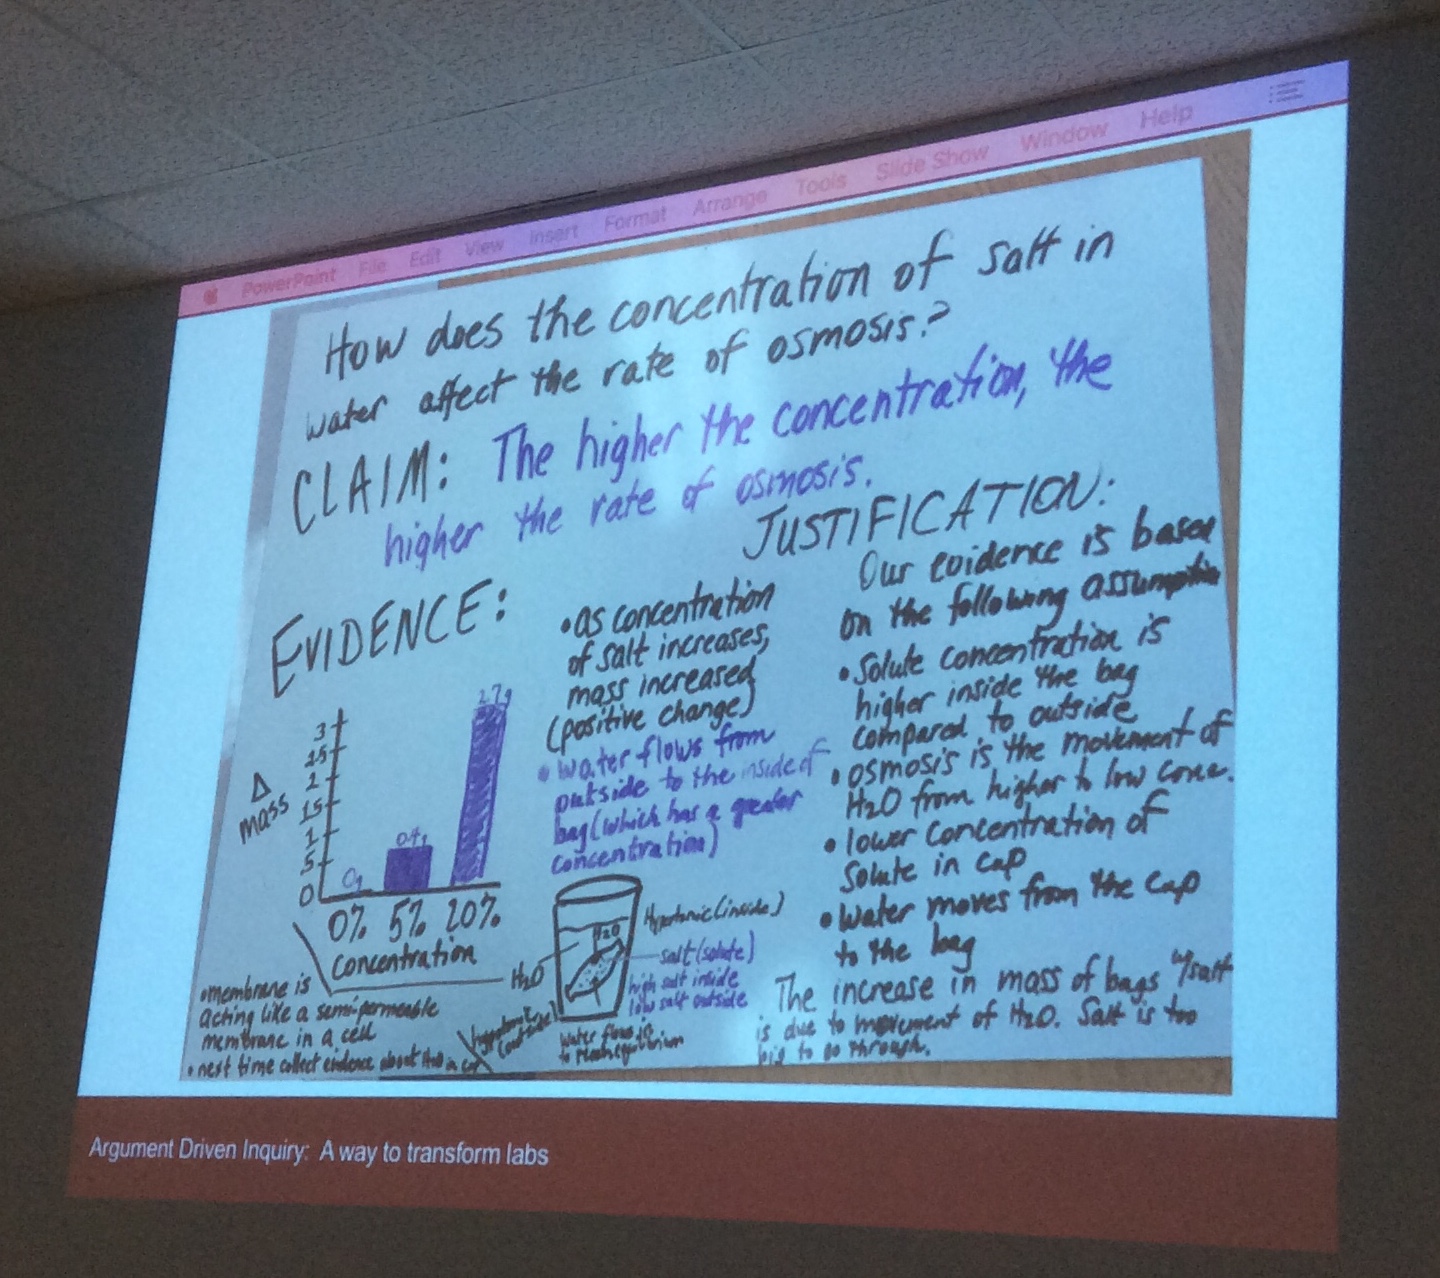 PowerPoint File Edit View Insert Format Arrange Tools Slide Show Window Help
How does the concentration of salt in
water affect the rate of osmosis?
CLAIM: The higher the concentration, the
higher the rate of osmosis.
EVIDENCE:
3
2
1.5
1
.5
0
Δ
mass
0g
2.7g
0% 5% 20%
Concentration
• membrane is
acting like a semi-permeable
membrane in a cell
• next time collect evidence about
• as concentration
of salt increases,
mass increased
(positive change)
• water flows from
outside to the inside of
bag (which has a greater
concentration)
H2O
H2O
Hypertonic (inside)
salt (solute)
high salt inside
low salt outside
water flows in
to reach equilibrium
JUSTIFICATION:
Our evidence is based
on the following assumption
• Solute concentration is
higher inside the bag
compared to outside
• osmosis is the movement of
H2O from higher to low conc.
• lower concentration of
solute in cup
• water moves from the cup
to the bag
The increase in mass of bags w/salt
is due to movement of H2O. Salt is too
big to go through.
Argument Driven Inquiry: A way to transform labs